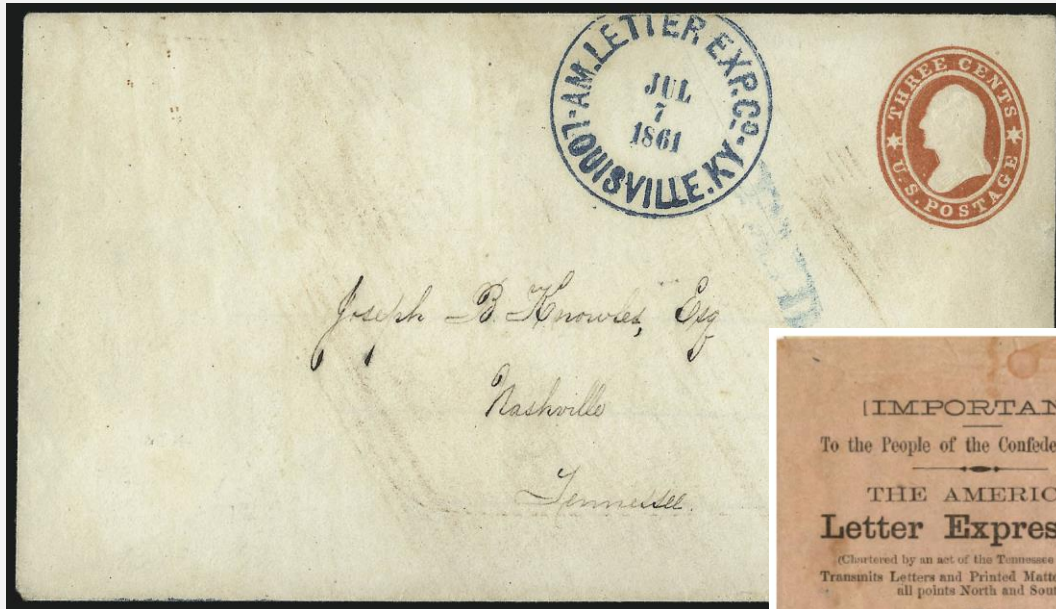 AM. LETTER EXP. Co
JUL
7
1861
LOUISVILLE. KY
THREE CENTS
U.S. POSTAGE
Joseph B. Knowles, Esq
Nashville
Tennessee.
[IMPORTAN
To the People of the Confede
THE AMERIC
Letter Expres
(Chartered by an act of the Tennessee
Transmits Letters and Printed Matte
all points North and Sou